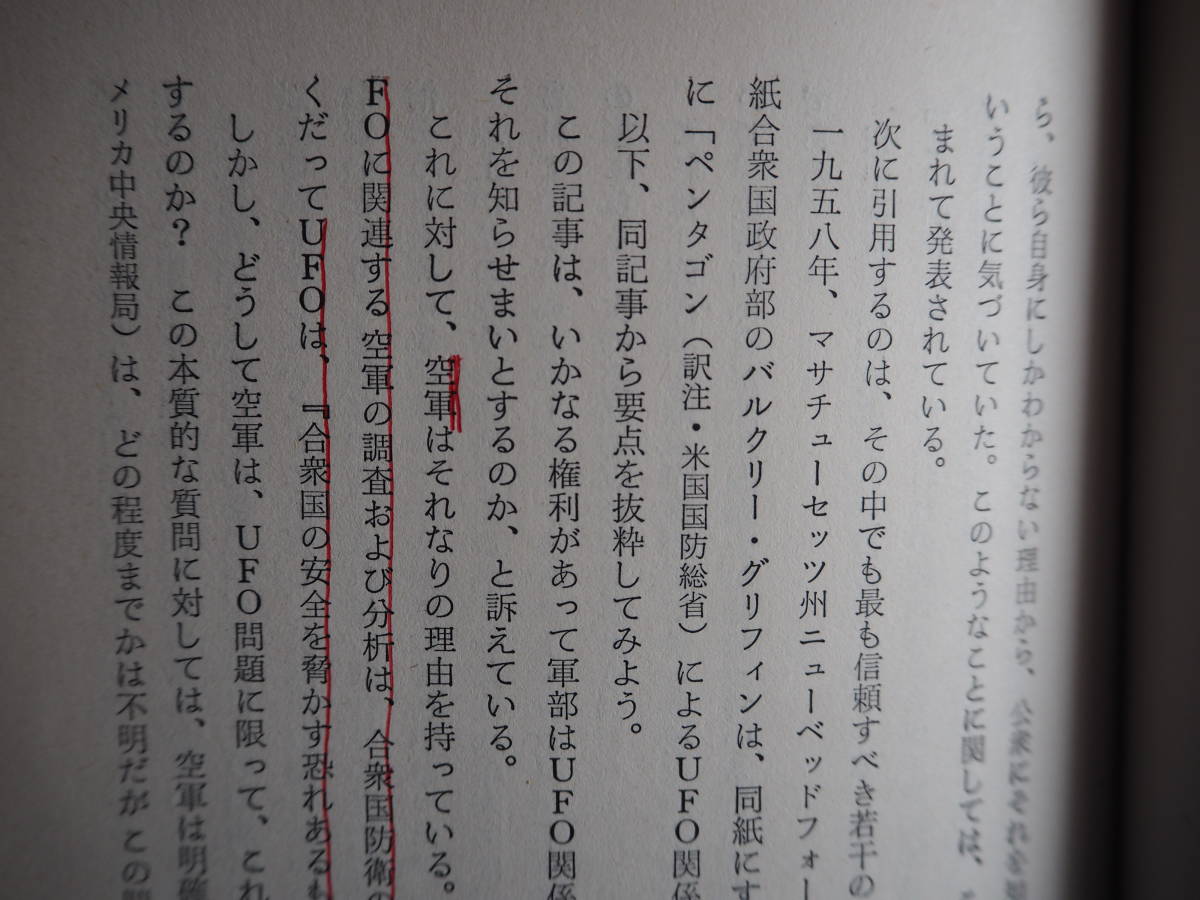 ら、彼ら自身にしかわからない理由から、公衆にそれを
いうことに気づいていた。このようなことに関しては、
まれて発表されている。
次に引用するのは、その中でも最も信頼すべき若干の
一九五八年、マサチューセッツ州ニューベッドフォー
紙合衆国政府部のバルクリー・グリフィンは、同紙にす
に「ペンタゴン（訳注・米国国防総省）によるUFO関係
以下、同記事から要点を抜粋してみよう。
この記事は、いかなる権利があって軍部はUFO関係
それを知らせまいとするのか、と訴えている。
これに対して、空軍はそれなりの理由を持っている。
FOに関連する空軍の調査および分析は、合衆国防衛の
くだってUFOは、『合衆国の安全を脅かす恐れあるも
しかし、どうして空軍は、UFO問題に限って、これ
するのか？　この本質的な質問に対しては、空軍は明確
メリカ中央情報局）は、どの程度までかは不明だがこの